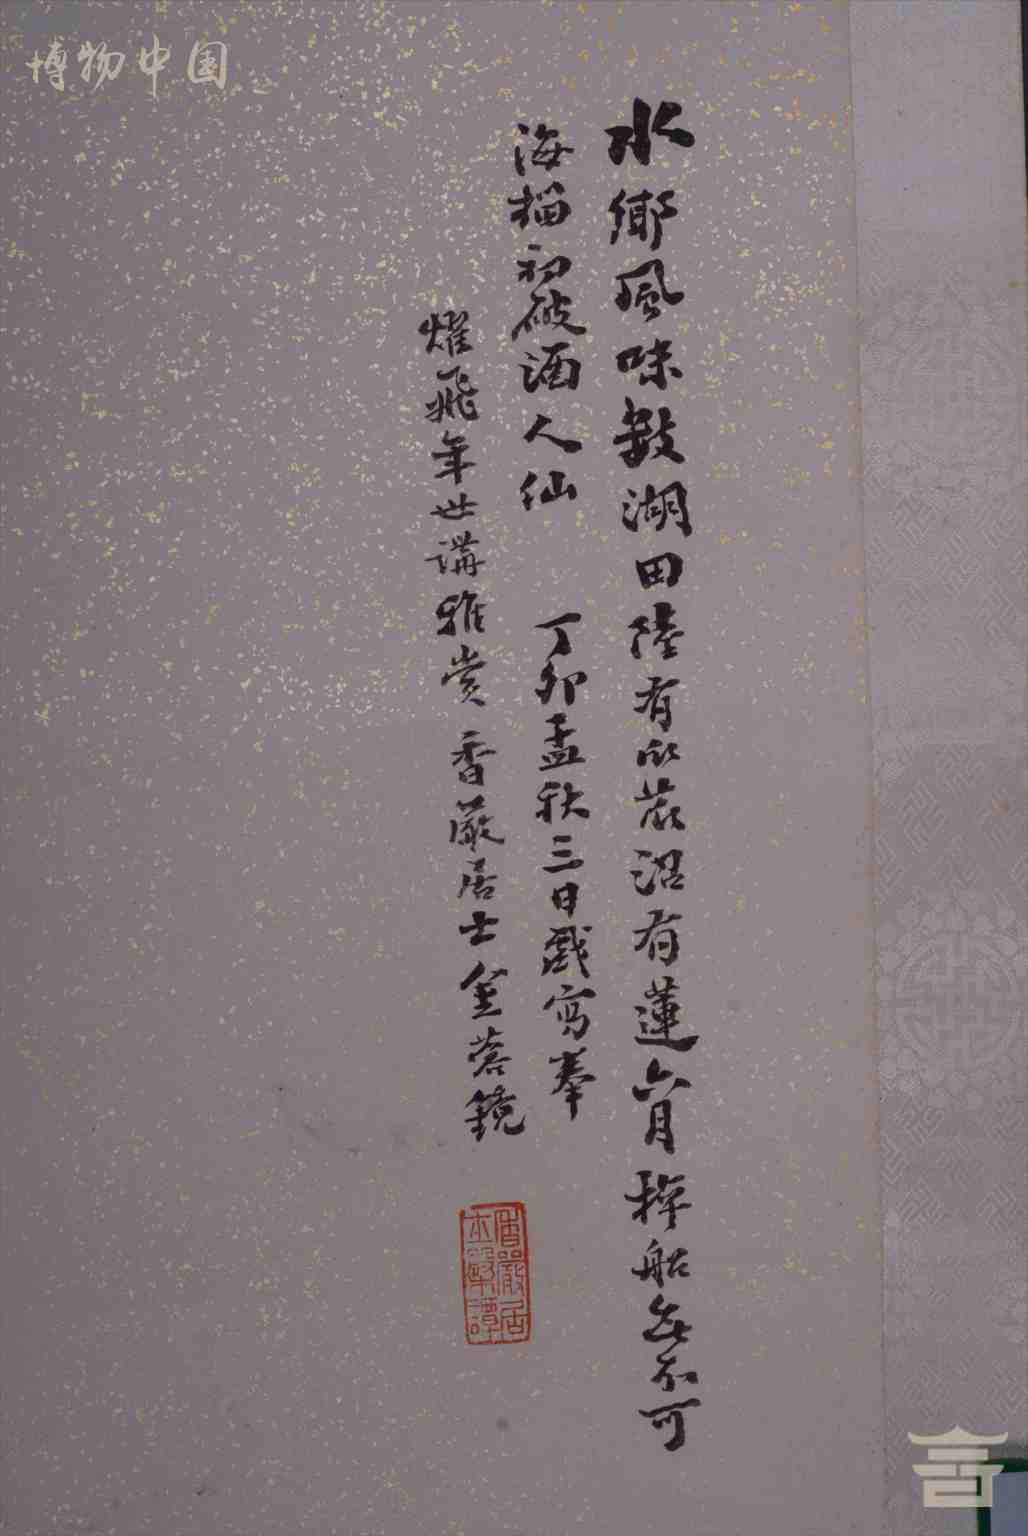 博物中国
水鄉風味數湖田陸有瓜蔬沼有蓮六月撑船無不可
海榴初破酒人仙 丁卯孟秋三日戲寫奉
燿飛年世講雅賞 香嚴居士金蓉鏡
香嚴居士鬖譚